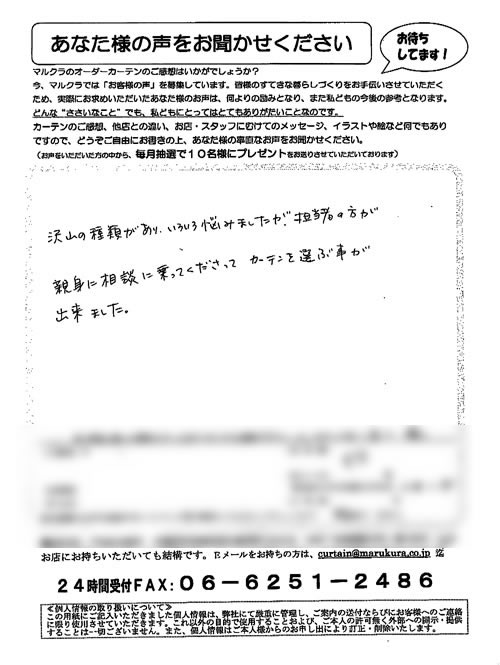 あなた様の声をお聞かせください
お待ち
してます!
マルクラのオーダーカーテンのご感想はいかがでしょうか?
今、マルクラでは「お客様の声」を募集しています。皆様のすてきな暮らしづくりをお手伝いさせていただく
ため、実際にお求めいただいたあなた様のお声は、何よりの励みとなり、また私どもの今後の参考となります。
どんな“ささいなこと”でも、私どもにとってはとてもありがたいことなのです。
カーテンのご感想、他店との違い、お店・スタッフにむけてのメッセージ、イラストや絵など何でもあり
ですので、どうぞご自由にお書きの上、あなた様の率直なお声をお聞かせください。
(お声をいただいた方の中から、毎月抽選で10名様にプレゼントをお送りさせていただいております)
沢山の種類があり、いろいろ悩みましたが、担当の方が
親身に相談に乗ってくださって カーテンを選ぶ事が
出来ました。
お店にお持ちいただいても結構です。Eメールをお持ちの方は、curtain@marukura.co.jp 迄
24時間受付FAX:06-6251-2486
≪個人情報の取り扱いについて≫
この用紙にご記入いただきました個人情報は、弊社にて厳重に管理し、ご案内の送付ならびにお客様へのご連絡
に限り使用させていただきます。これ以外の目的で使用することおよび、ご本人の許可無く外部への開示・提供
することは一切ございません。また、個人情報はご本人様からのお申し出により訂正・削除いたします。